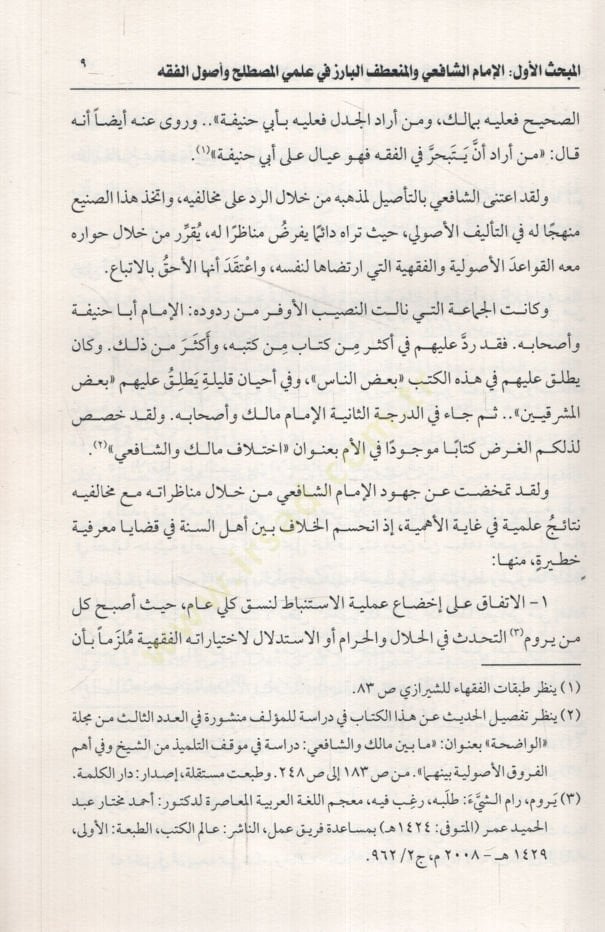 المبحث الأول: الإمام الشافعي والمنعطف البارز في علمي المصطلح وأصول الفقه ٩
الصحيح فعليه بمالك، ومن أراد الجدل فعليه بأبي حنيفة».. وروى عنه أيضاً أنه
قال: «من أراد أنَّ يَتَبحرَّ في الفقه فهو عيال على أبي حنيفة»(١).
ولقد اعتنى الشافعي بالتأصيل لمذهبه من خلال الرد على مخالفيه، واتخذ هذا الصنيع
منهجًا له في التأليف الأصولي، حيث تراه دائمًا يفرضُ مناظرًا له، يُقرِّر من خلال حواره
معه القواعدَ الأصولية والفقهية التي ارتضاها لنفسه، واعْتقَدَ أنها الأحقُّ بالاتباع.
وكانت الجماعة التي نالت النصيب الأوفر من ردوده: الإمام أبا حنيفة
وأصحابه. فقد ردَّ عليهم في أكثر مِن كتاب مِن كتبه، وأَكثَرَ من ذلك. وكان
يطلق عليهم في هذه الكتب «بعض الناس»، وفي أحيان قليلةٍ يَطلِقُ عليهم «بعض
المشرقيين».. ثم جاء في الدرجة الثانية الإمام مالك وأصحابه. ولقد خصص
لذلكم الغرض كتابًا موجودًا في الأم بعنوان «اختلاف مالك والشافعي»(٢).
ولقد تمخضت عن جهود الإمام الشافعي من خلال مناظراته مع مخالفيه
نتائجُ علمية في غاية الأهمية، إذ انحسم الخلاف بين أهل السنة في قضايا معرفية
خطيرةٍ، منها:
١- الاتفاق على إخضاع عملية الاستنباط لنسق كلي عام، حيث أصبح كل
من يروم(٣) التحدث في الحلال والحرام أو الاستدلال لاختياراته الفقهية مُلزَماً بأن
(١) ينظر طبقات الفقهاء للشيرازي ص ٨٣.
(٢) ينظر تفصيل الحديث عن هذا الكتاب في دراسة للمؤلف منشورة في العدد الثالث من مجلة
«الواضحة» بعنوان: «ما بين مالك والشافعي: دراسة في موقف التلميذ من الشيخ وفي أهم
الفروق الأصولية بينهما». من ص ١٨٣ إلى ص ٢٤٨. وطبعت مستقلة، إصدار: دار الكلمة.
(٣) يَروم، رام الشيَّءَ: طلَبه، رغِب فيه، معجم اللغة العربية المعاصرة لدكتور: أحمد مختار عبد
الحميد عمر (المتوفى: ١٤٢٤هـ) بمساعدة فريق عمل، الناشر: عالم الكتب، الطبعة: الأولى،
١٤٢٩ هـ - ٢٠٠٨ م، ج٢/ ٩٦٢.